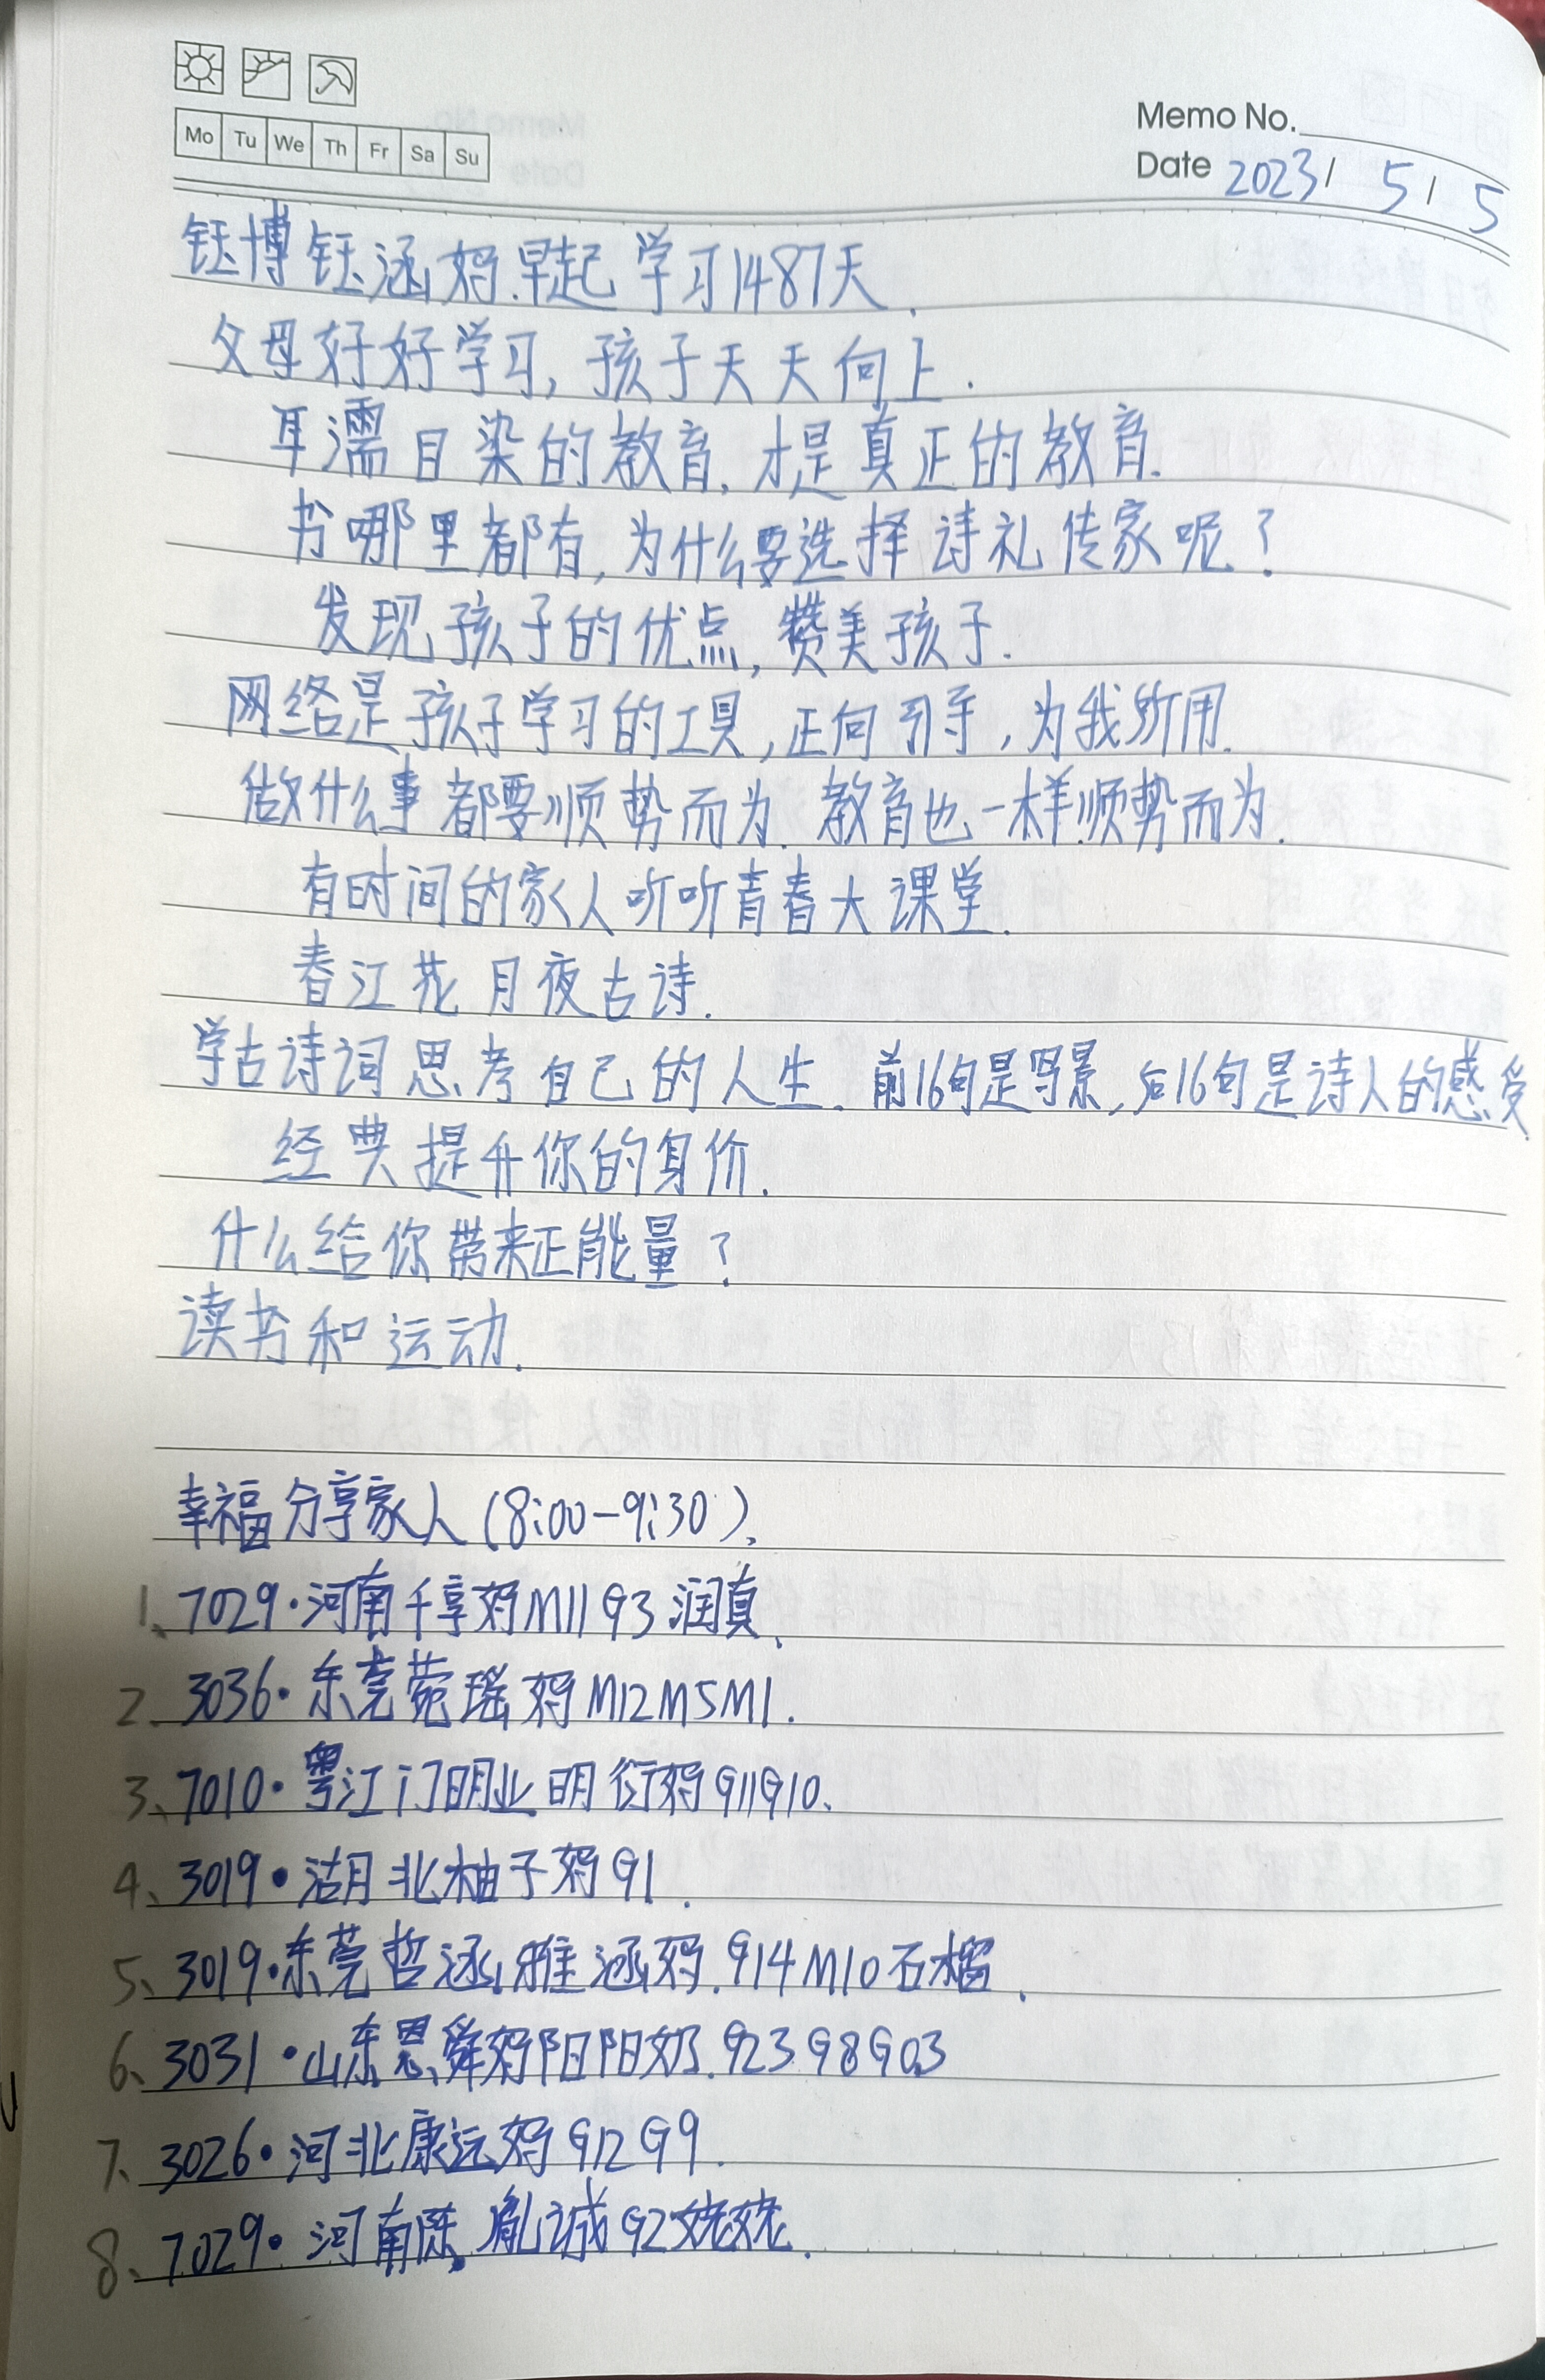 Mo Tu We Th Fr Sa Su
Memo No.
Date 2023/ 5/ 5
钰博钰涵妈.早起学习1487天.
父母好好学习,孩子天天向上.
耳濡目染的教育,才是真正的教育.
书哪里都有,为什么要选择诗礼传家呢?
发现孩子的优点,赞美孩子.
网络是孩子学习的工具,正向引导,为我所用.
做什么事都要顺势而为.教育也一样顺势而为.
有时间的家人听听青春大课堂.
春江花月夜古诗.
学古诗词思考自己的人生.前16句是写景,后16句是诗人的感受.
经典提升你的身价.
什么给你带来正能量?
读书和运动.
幸福分享家人(8:00-9:30).
1、7029·河南千享妈M11G3润真.
2、3036·东莞菀瑶妈M12M5M1.
3、7010·粤江门明业明衍妈G11G10.
4、3019·湖北柚子妈G1.
5、3019·东莞哲涵雅涵妈.G14M10石榴.
6、3031·山东思舜妈阳阳奶.G23G8G03
7、3026·河北康远妈G12G9.
8、7029·河南陈胤诚G2姥姥.